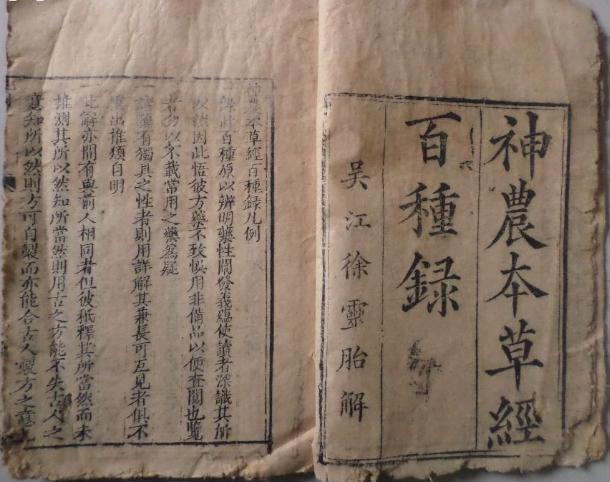 神農本草經
百種録
吳江徐靈胎解
神農本草經百種録凡例
一辑此百種原以辨明藥性闡發義藴使讀者深識其所
以然因此悟彼方藥不致悞用非備品以便查閱也覽
者勿以不載常用之藥爲疑
諸藥有獨具之性者則用詳解其兼長可互見者俱不
重出推類自明
此解亦間有與前人相同者但彼秖釋其所當然而未
推測其所以然知所當然則用古之方能不失古人之
意知所以然則方可自製而亦能合古人製方之意